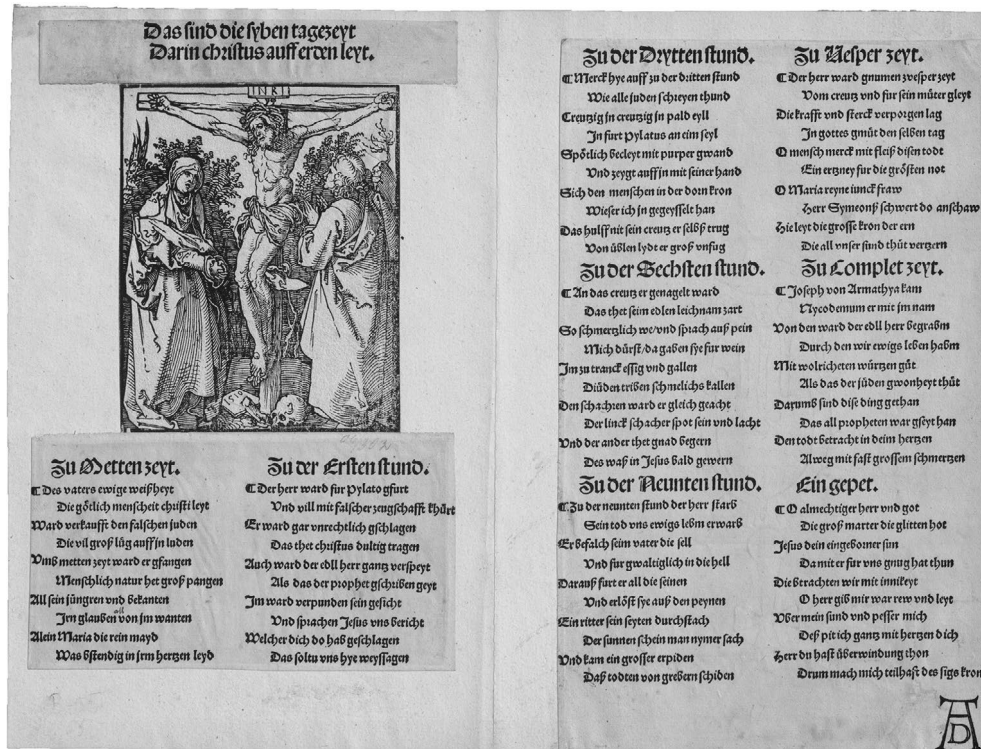 Das sind die syben tagezeyt
Darin christus auff erden leyt.
INRI
Zu Metten zeyt.
¶ Des vaters ewige weißheyt
Die götlich menscheit christi leyt
Ward verkaufft den falschen juden
Die vil groß lüg auff jn luden
Vmb metten zeyt ward er gfangen
Menschlich natur het groß pangen
All sein jüngren vnd bekanten
Irn glauben all von jm wanten
Alein Maria die rein mayd
Was bstendig in jrm hertzen leyd
Zu der Ersten stund.
¶ Der herr ward fur Pylato gfurt
Vnd vill mit falscher zeugschafft
Er ward gar vnrechtlich gschlagen
Das thet christus dultig tragen
Auch ward der edll herr gantz verspeyt
Als das der prophet gschriben geyt
Im ward verpunden sein gesicht
Vnd sprachen Jesus vns bericht
Welcher dich do hab geschlagen
Das soltu vns hye weyssagen
Zu der Drytten stund.
¶ Merck hye auff zu der dritten stund
Wie alle juden schreyen thund
Creutzig jn creutzig jn pald eyll
In furt Pylatus an eim seyl
Spötlich becleyt mit purper gwand
Vnd zeygt auff jn mit seiner hand
Sich den menschen in der dorn kron
Wie ser ich jn gegeysselt han
Das hulff nit sein creutz er selbß trug
Von üblen lydt er groß vnfug
Zu der Sechsten stund.
¶ An das creutz er genagelt ward
Das thet seim edlen leichnam zart
So schmertzlich we/vnd sprach auß pein
Mich dürst/da gaben sye fur wein
Im zu tranck essig vnd gallen
Die iüden triben schmelichs kallen
Den schachren ward er gleich geacht
Der linck schacher spot sein vnd lacht
Vnd der ander thet gnad begern
Des waß in Jesus bald gewern
Zu der Neunten stund.
¶ Zu der neunten stund der herr starb
Sein tod vns ewigs lebm erwarb
Er befalch seim vater die sell
Vnd fur gwaltiglich in die hell
Darauß furt er all die seinen
Vnd erlöst sye auß den peynen
Ein ritter sein seyten durchstach
Der sunnen schein man nymer sach
Vnd kam ein grosser erpiden
Daß todten von grebern schiden
Zu Vesper zeyt.
¶ Der herr ward gnumen zvesper zeyt
Vom creutz vnd fur sein müter gleyt
Die krafft vnd sterck verporgen lag
In gottes gmüt den selben tag
O mensch merck mit fleiß disen todt
Ein ertzney fur die grösten not
O Maria reyne iunckfraw
Herr Symeonß schwert do anschaw
Hie leyt die grosse kron der ern
Die all vnser sund thüt vertzern
Zu Complet zeyt.
¶ Joseph von Armathya kam
Nycodemum er mit jm nam
Von den ward der edll herr begrabm
Durch den wir ewigs leben habm
Mit wolricheten würtzen güt
Als das der jüden gwonheyt thüt
Darumb sind dise ding gethan
Das all propheten war gseyt han
Den todt betracht in deim hertzen
Alweg mit fast grossem schmertzen
Ein gepet.
¶ O almechtiger herr vnd got
Die groß marter die glitten hot
Jesus dein eingeborner sun
Da mit er fur vns gnug hat thun
Die betrachten wir mit innikeyt
O herr gib mir war rew vnd leyt
Vber mein sund vnd pesser mich
Deß pit ich gantz mit hertzen dich
Herr du hast überwindung thon
Drum mach mich teilhaft des sigs kron
AD